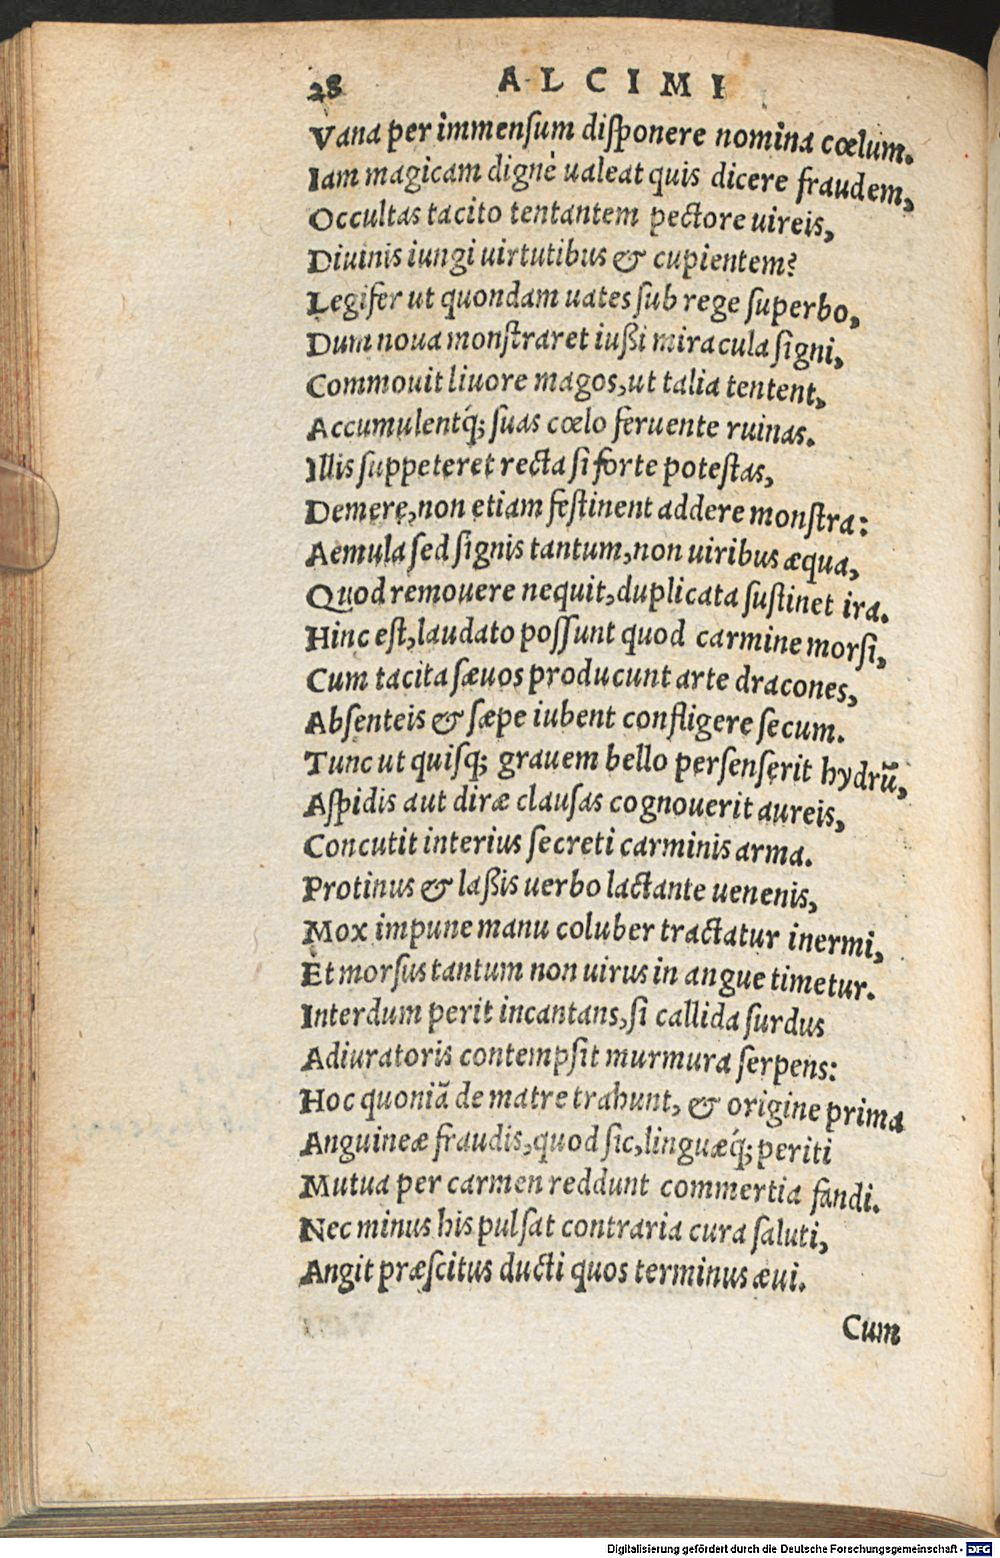 28 ALCIMI
Vana per immensum disponere nomina cœlum.
Iam magicam dignè ualeat quis dicere fraudem,
Occultas tacito tentantem pectore uireis,
Diuinis iungi uirtutibus & cupientem?
Legifer ut quondam uates sub rege superbo,
Dum noua monstraret iußi miracula signi,
Commouit liuore magos, ut talia tentent,
Accumulentq́; suas cœlo feruente ruinas.
Illis suppeteret recta si forte potestas,
Demere, non etiam festinent addere monstra:
Aemula sed signis tantum, non uiribus æqua,
Quod remouere nequit, duplicata sustinet ira.
Hinc est, laudato possunt quod carmine morsi,
Cum tacita sæuos producunt arte dracones,
Absenteis & sæpe iubent confligere secum.
Tunc ut quisq; grauem bello persenserit hydrũ,
Aspidis aut diræ clausas cognouerit aureis,
Concutit interius secreti carminis arma.
Protinus & laßis uerbo lactante uenenis,
Mox impune manu coluber tractatur inermi,
Et morsus tantum non uirus in angue timetur.
Interdum perit incantans, si callida surdus
Adiuratoris contempsit murmura serpens:
Hoc quoniã de matre trahunt, & origine prima
Anguineæ fraudis, quod sic, linguæq́; periti
Mutua per carmen reddunt commertia fandi.
Nec minus his pulsat contraria cura saluti,
Angit præscitus ducti quos terminus æui.
Cum
Digitalisierung gefördert durch die Deutsche Forschungsgemeinschaft - DFG